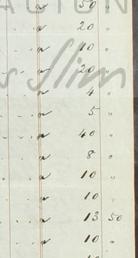 AUCTION
" 50
" 20 "
" 10 "
" 20 "
" 4 "
" 5 "
" 40 "
" 8 "
" 10 "
" 10 "
" 13 50
" 10 "